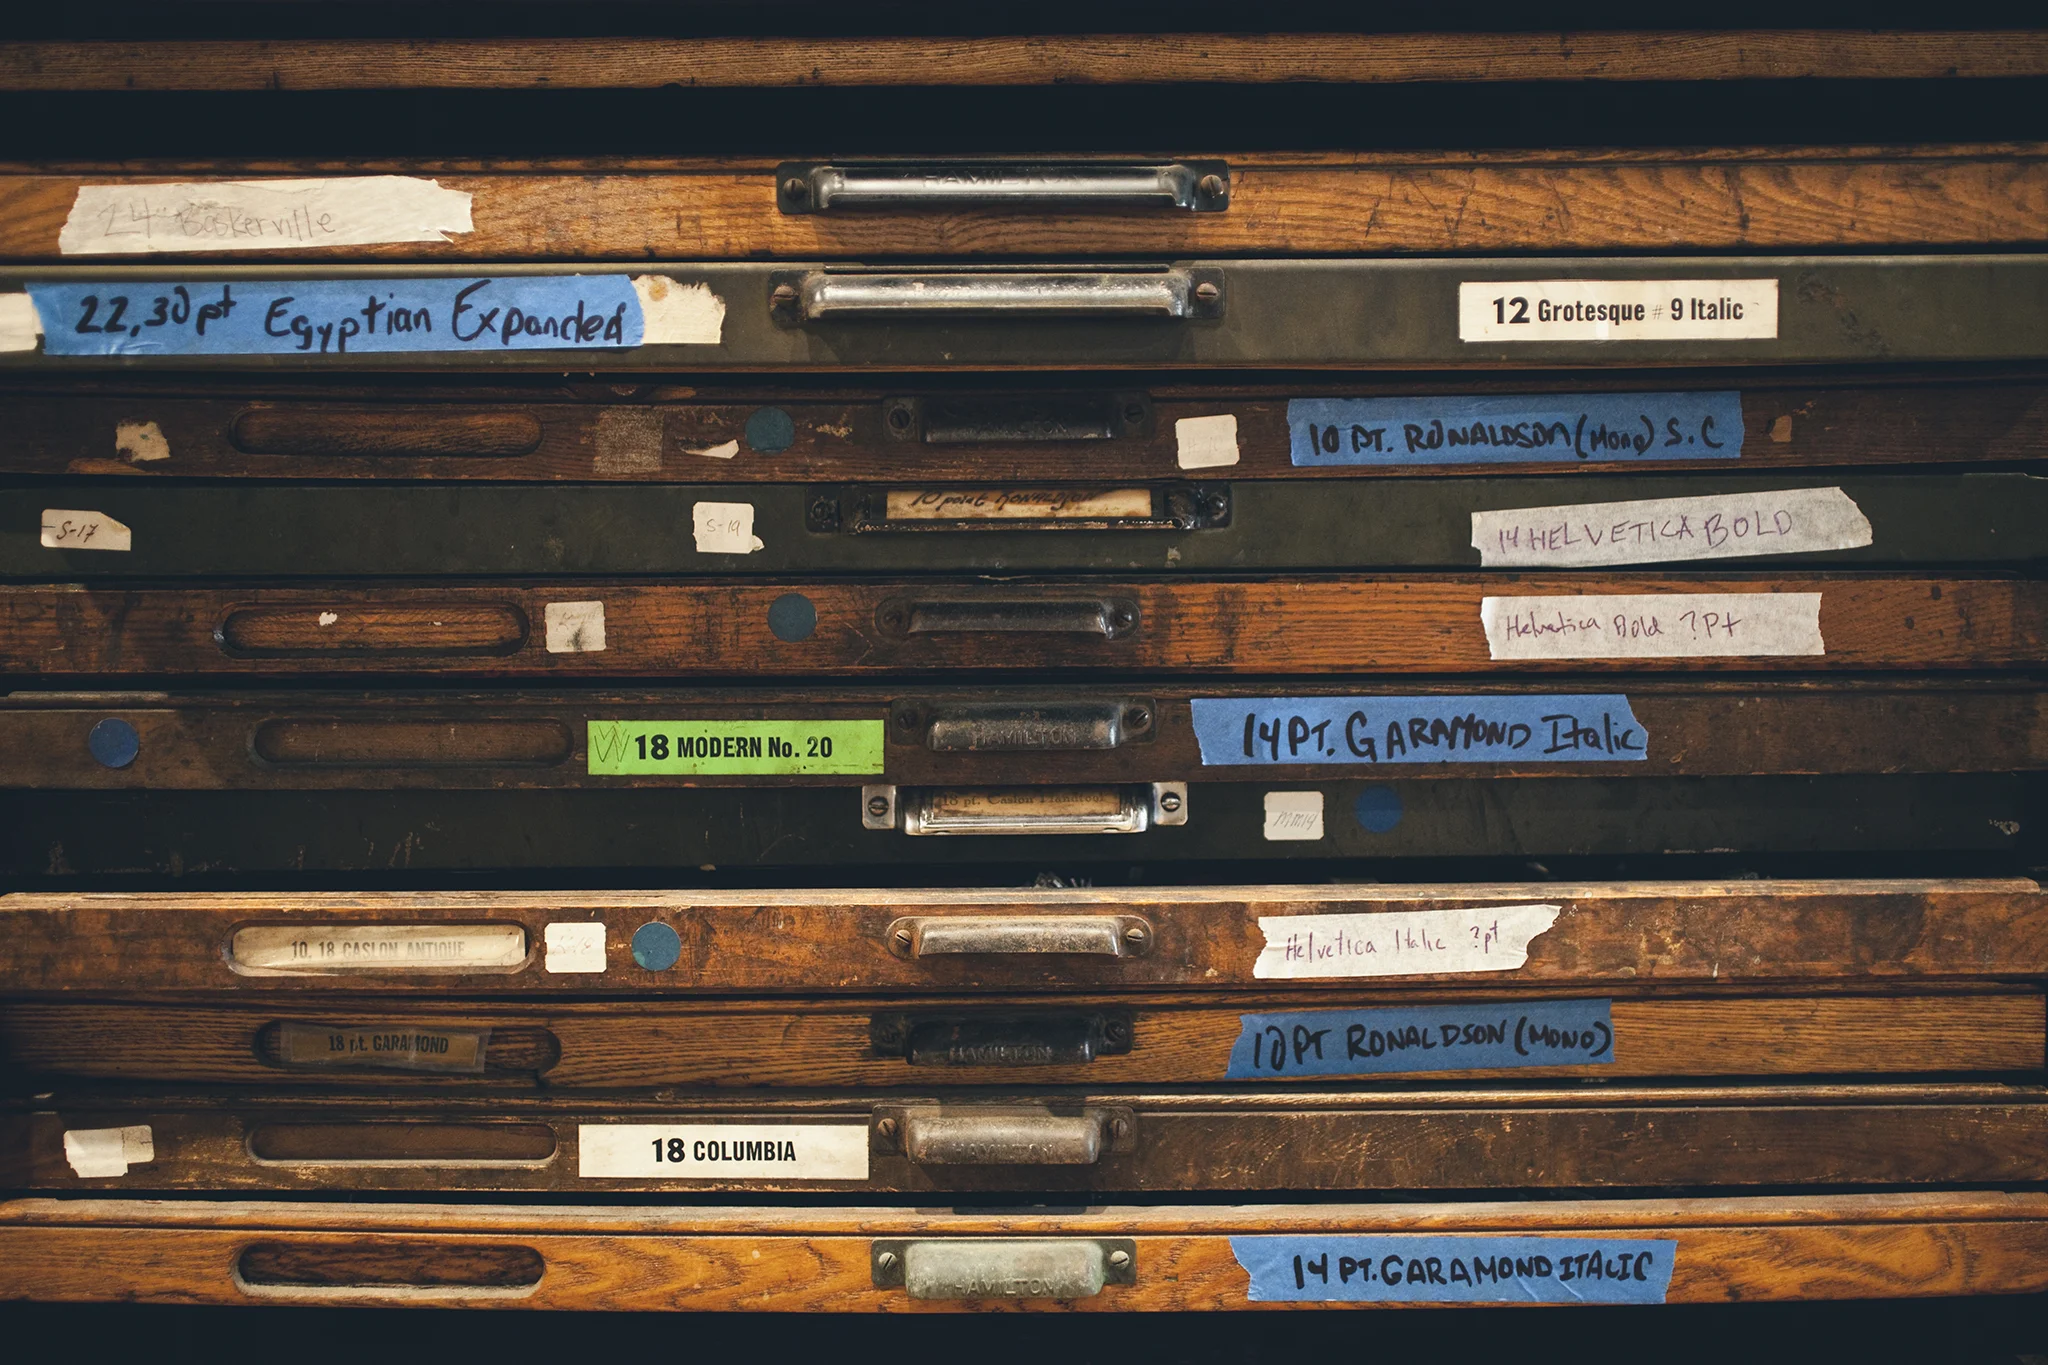 HAMILTON
24 Baskerville
22,30 pt Egyptian Expanded
12 Grotesque # 9 Italic
HAMILTON
10 PT. RONALDSON (MONO) S.C
S-17
S-19
10 point RONALDSON
14 HELVETICA BOLD
Helvetica Bold ?Pt
18 MODERN No. 20
HAMILTON
14 PT. GARAMOND Italic
18 pt. Caslon
10, 18 CASLON ANTIQUE
Helvetica Italic ?pt
18 pt. GARAMOND
HAMILTON
10 PT RONALDSON (MONO)
18 COLUMBIA
HAMILTON
HAMILTON
14 PT. GARAMOND ITALIC